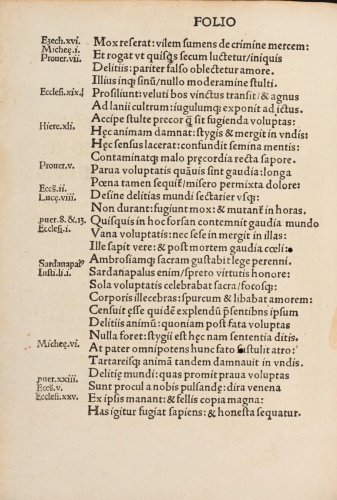 FOLIO
Ezech.xvi. Mox reserat: vilem sumens de crimine mercem:
Micheę.i. Et rogat vt quisqȝ secum luctetur/iniquis
Prouer.vii. Delitiis: pariter falso oblectetur amore.
Illius inqȝ sinu/nullo moderamine stulti.
Ecclesi.xix. Prosiliunt: veluti bos vinctus transit/& agnus
Ad lanii cultrum: iugulumqȝ exponit ad ictus.
Accipe stulte precor ꝙ sit fugienda voluptas:
Hiere.xli. Hęc animam damnat: stygis & mergit in vndis:
Hęc sensus lacerat: confundit semina mentis:
Contaminatqȝ malo pręcordia recta sapore.
Prouer.v. Parua voluptatis quãuis sunt gaudia: longa
Eccs̃.ii. Pœna tamen sequit᷑/misero permixta dolore:
Lucę.viii. Desine delitias mundi sectarier vsqȝ:
Non durant: fugiunt mox: & mutant᷑ in horas.
puer.8.&.13. Quisquis in hoc forsan contemnit gaudia mundo
Ecclesi.i. Vana voluptatis: nec sese in mergit in illas:
Ille sapit vere: & post mortem gaudia cœli:
Ambrosiamqȝ sacram gustabit lege perenni.
Sardanapalꝰ Sardanapalus enim/spreto virtutis honore:
Iusti.li.i. Sola voluptatis celebrabat sacra/focosqȝ:
Corporis illecebras: spurcum & libabat amorem:
Censuit esse quidẽ explendũ p̃sentibns ipsum
Delitiis animũ: quoniam post fata voluptas
Nulla foret: stygii est hęc nam sententia ditis.
Micheę.vi. At pater omnipotens hunc fato sustulit atro:
Tartareisqȝ animã tandem damnauit in vndis.
Delitię mundi: quas promit praua voluptas
puer.xxiii. Sunt procul a nobis pulsandę: dira venena
Eccs̃.v. Ex ipsis manant: & fellis copia magna:
Ecclesi.xxv. Has igitur fugiat sapiens: & honesta sequatur.